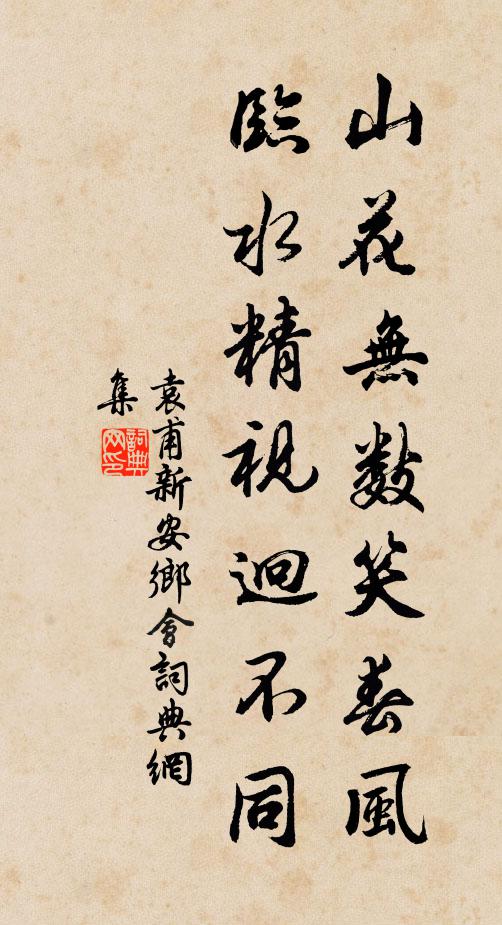 山花無数笑春風
臨水精視迥不同
袁甫新安鄉會詞典網
集
詞典
网印